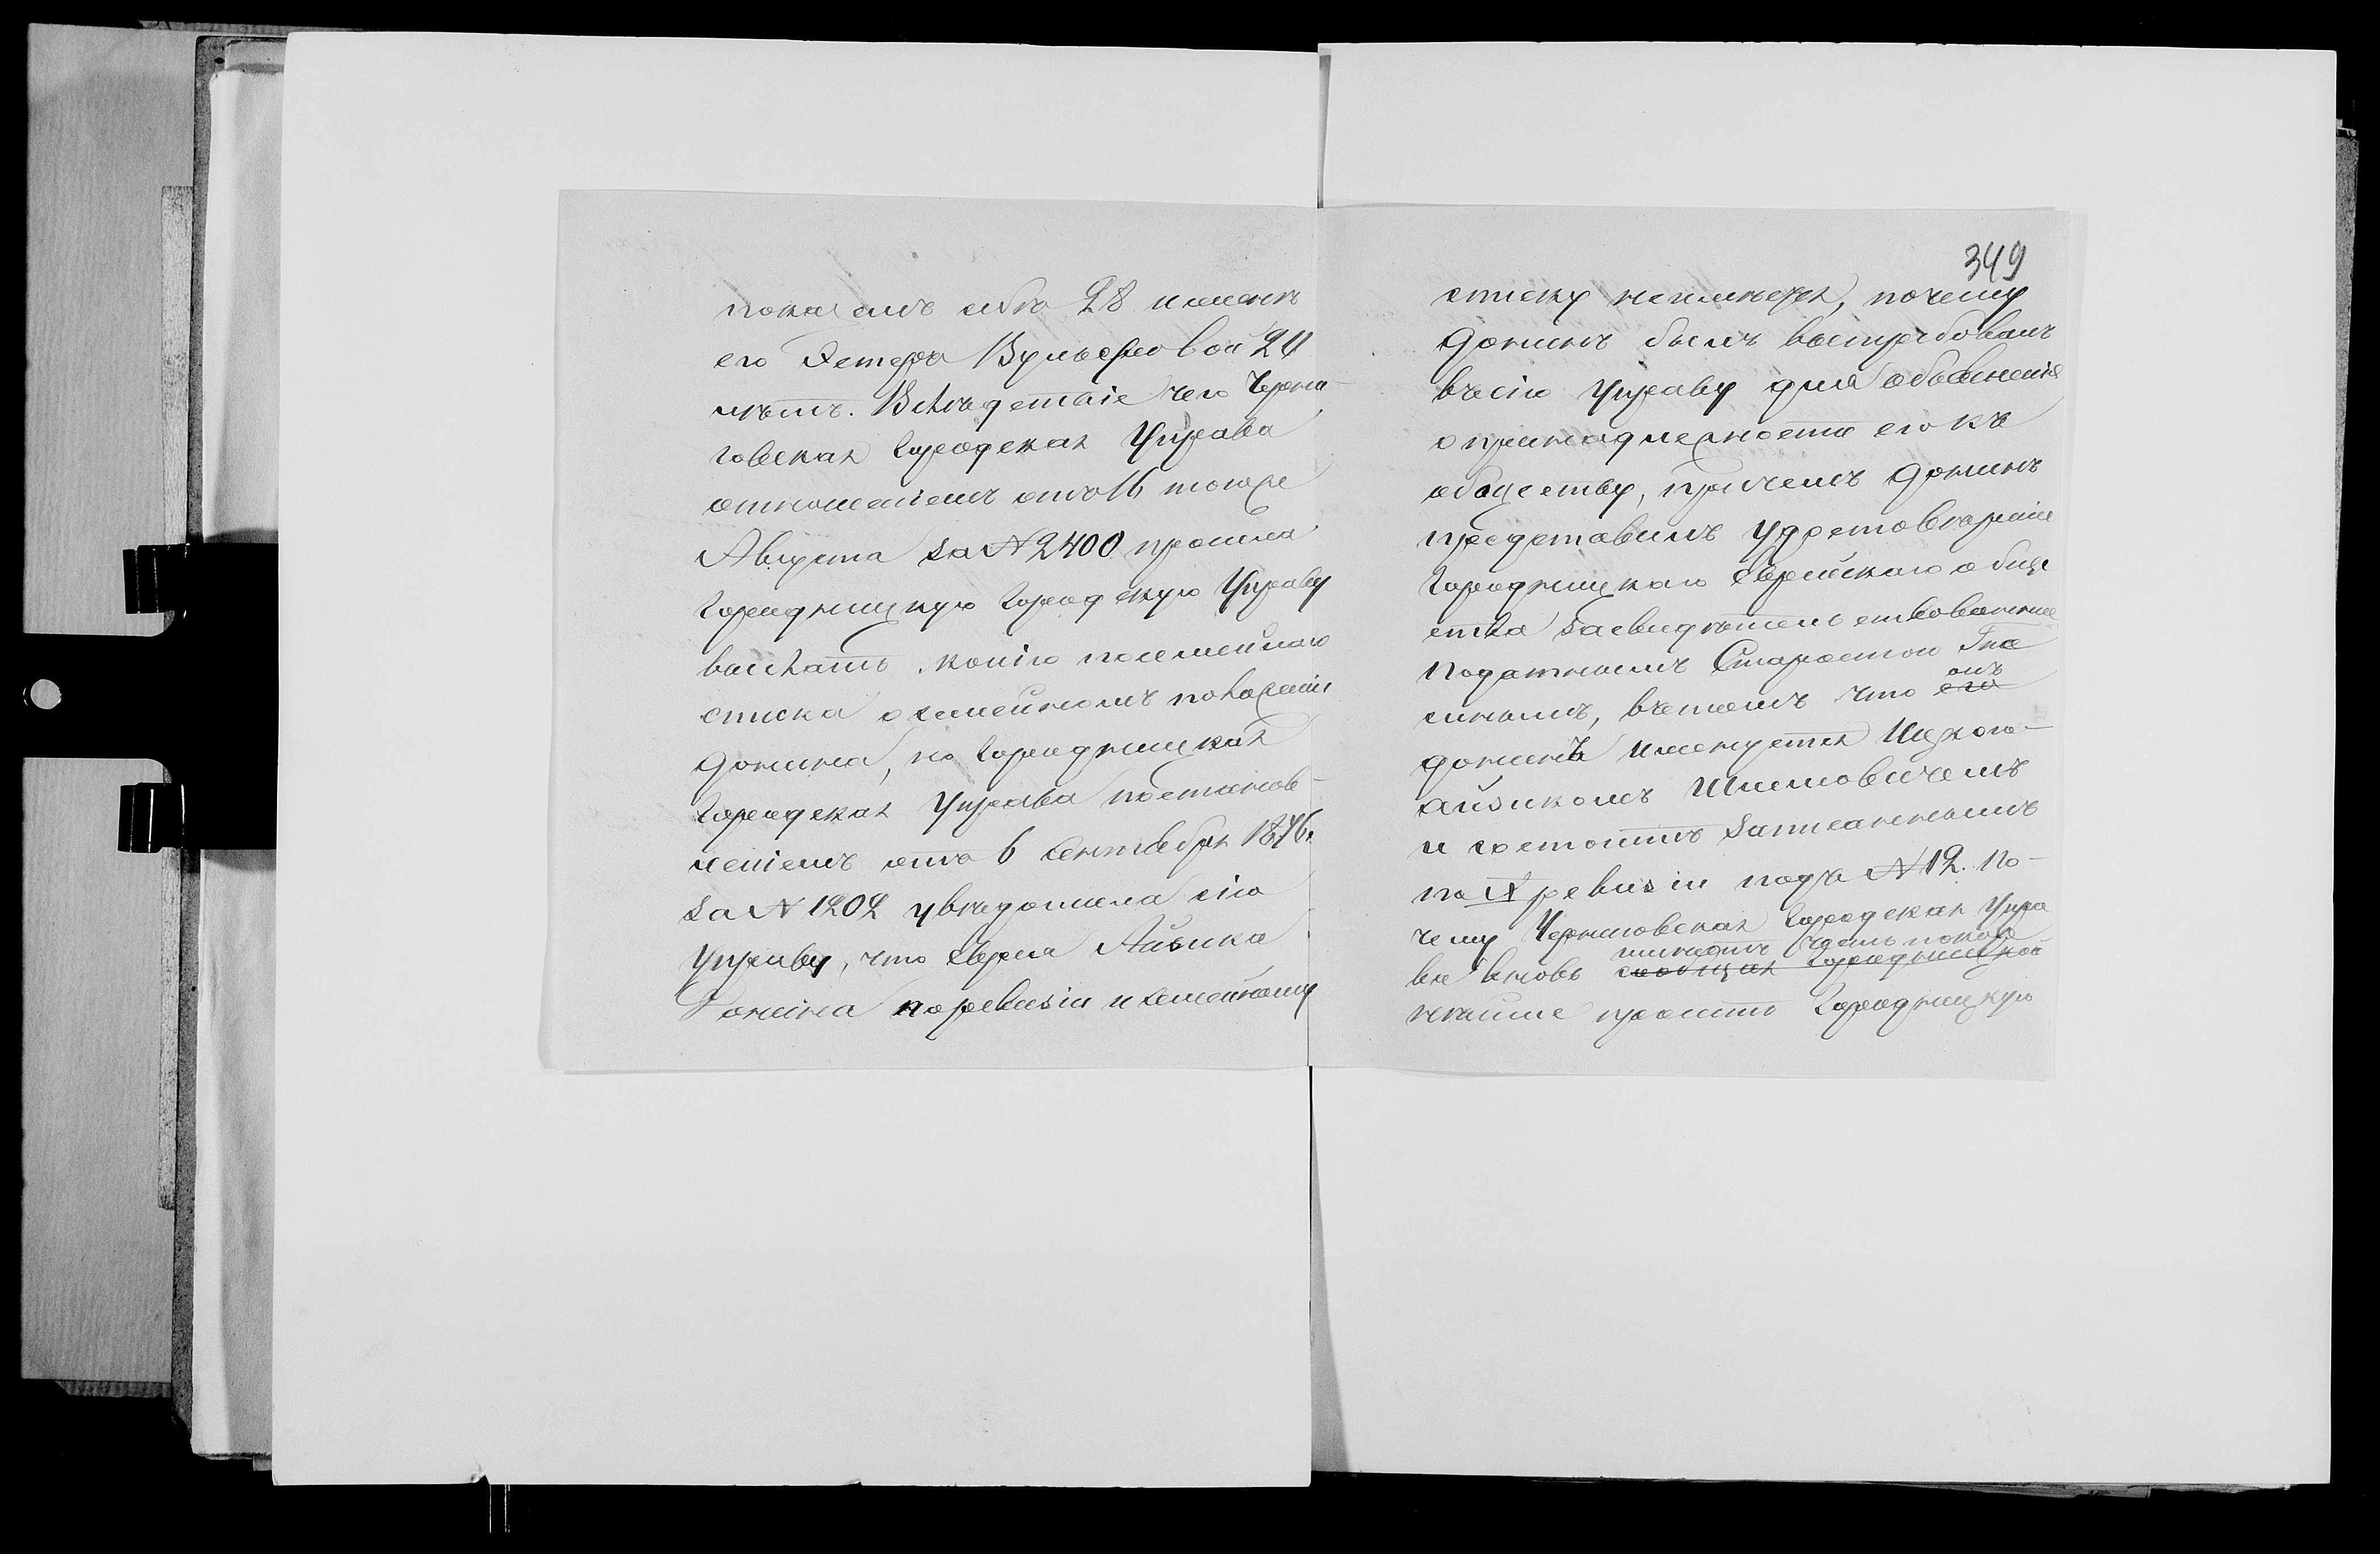 показалъ себѣ 28 и женѣ
его Эстеръ Вульфовой 24
лѣтъ. Вслѣдствіе чего Черни-
говская Городская Управа
отношеніемъ отъ 16 тогоже
Августа за № 2400 просила
Городницкую Городскую Управу
выслать копію посемейнаго
списка о семейномъ положеніи
Донина, но Городницкая
Городская Управа постанов-
леніемъ отъ 6 Сентября 1876 г.
за № 1202 увѣдомила сію
Управу, что еврея Айзика
Донина по ревизіи и семейному
349
списку не имѣется, почему
Донинъ былъ вытребованъ
въ сію Управу для объясненія
о принадлежности его къ
обществу, причемъ Донинъ
представилъ удостовѣреніе
Городницкаго Еврейскаго обще
ства засвидѣтельствованное
Податнымъ Старостою
синымъ, въ томъ что его
онъ
Донинъ именуется Ицко-
Айзикомъ Шлиовичемъ
и состоитъ записаннымъ
по X ревизіи подъ № 12. По-
чему Черниговская Городская Упра
ва вновь сообщая Городницкой
нѣйше проситъ Городницкую